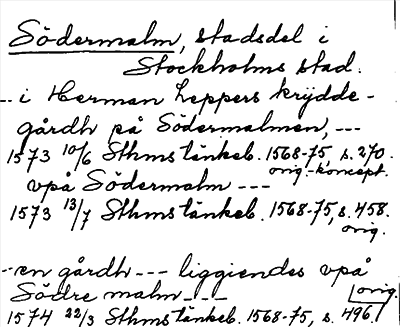 Södermalm, stadsdel i
Stockholms stad.
--- i Herman Leppers krydde-
gårdh på Södermalmen, ---
1573 10/6 Sthms tänkeb. 1568-75, s. 270.
orig.-koncept.
vpå Södermalm ---
1573 13/7 Sthms tänkeb. 1568-75, s. 458.
orig.
--- en gårdh --- liggiendes vpå
Södre malm ---
orig.
1574 22/3 Sthms tänkeb. 1568-75, s. 496.